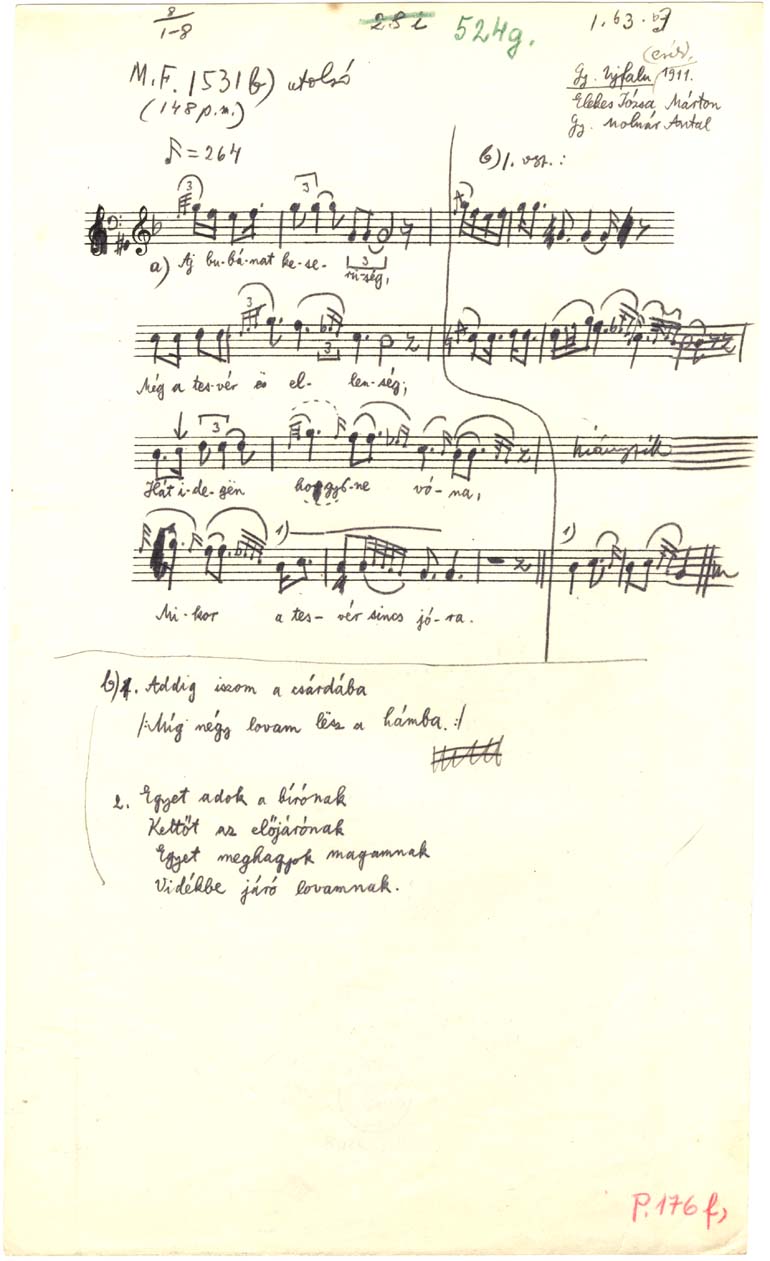 8
1-8
524g.
M.F. 1531b) utolsó
(148 p.m.)
Gy. Ujfalu 1911.
Elekes Józsa Márton
Gy. Molnár Antal
= 264
b) 1. vsz.:
3
3
a) Aj bu-bá-nat ke-se-rü-ség,
3
3
3
Még a tes-vér ës el- len-ség;
3
Hát i-de-gën hogy-ne vó-na,
hiányzik
1)
1)
Mi-kor a tes-vér sincs jó-ra.
b) 1. Addig iszom a csárdába
/:Míg négy lovam lësz a hámba.:/
2. Egyet adok a bírónak
Kettőt az előjárónak
Egyet meghagyok magamnak
Vidékbe járó lovamnak.
P. 176 f,